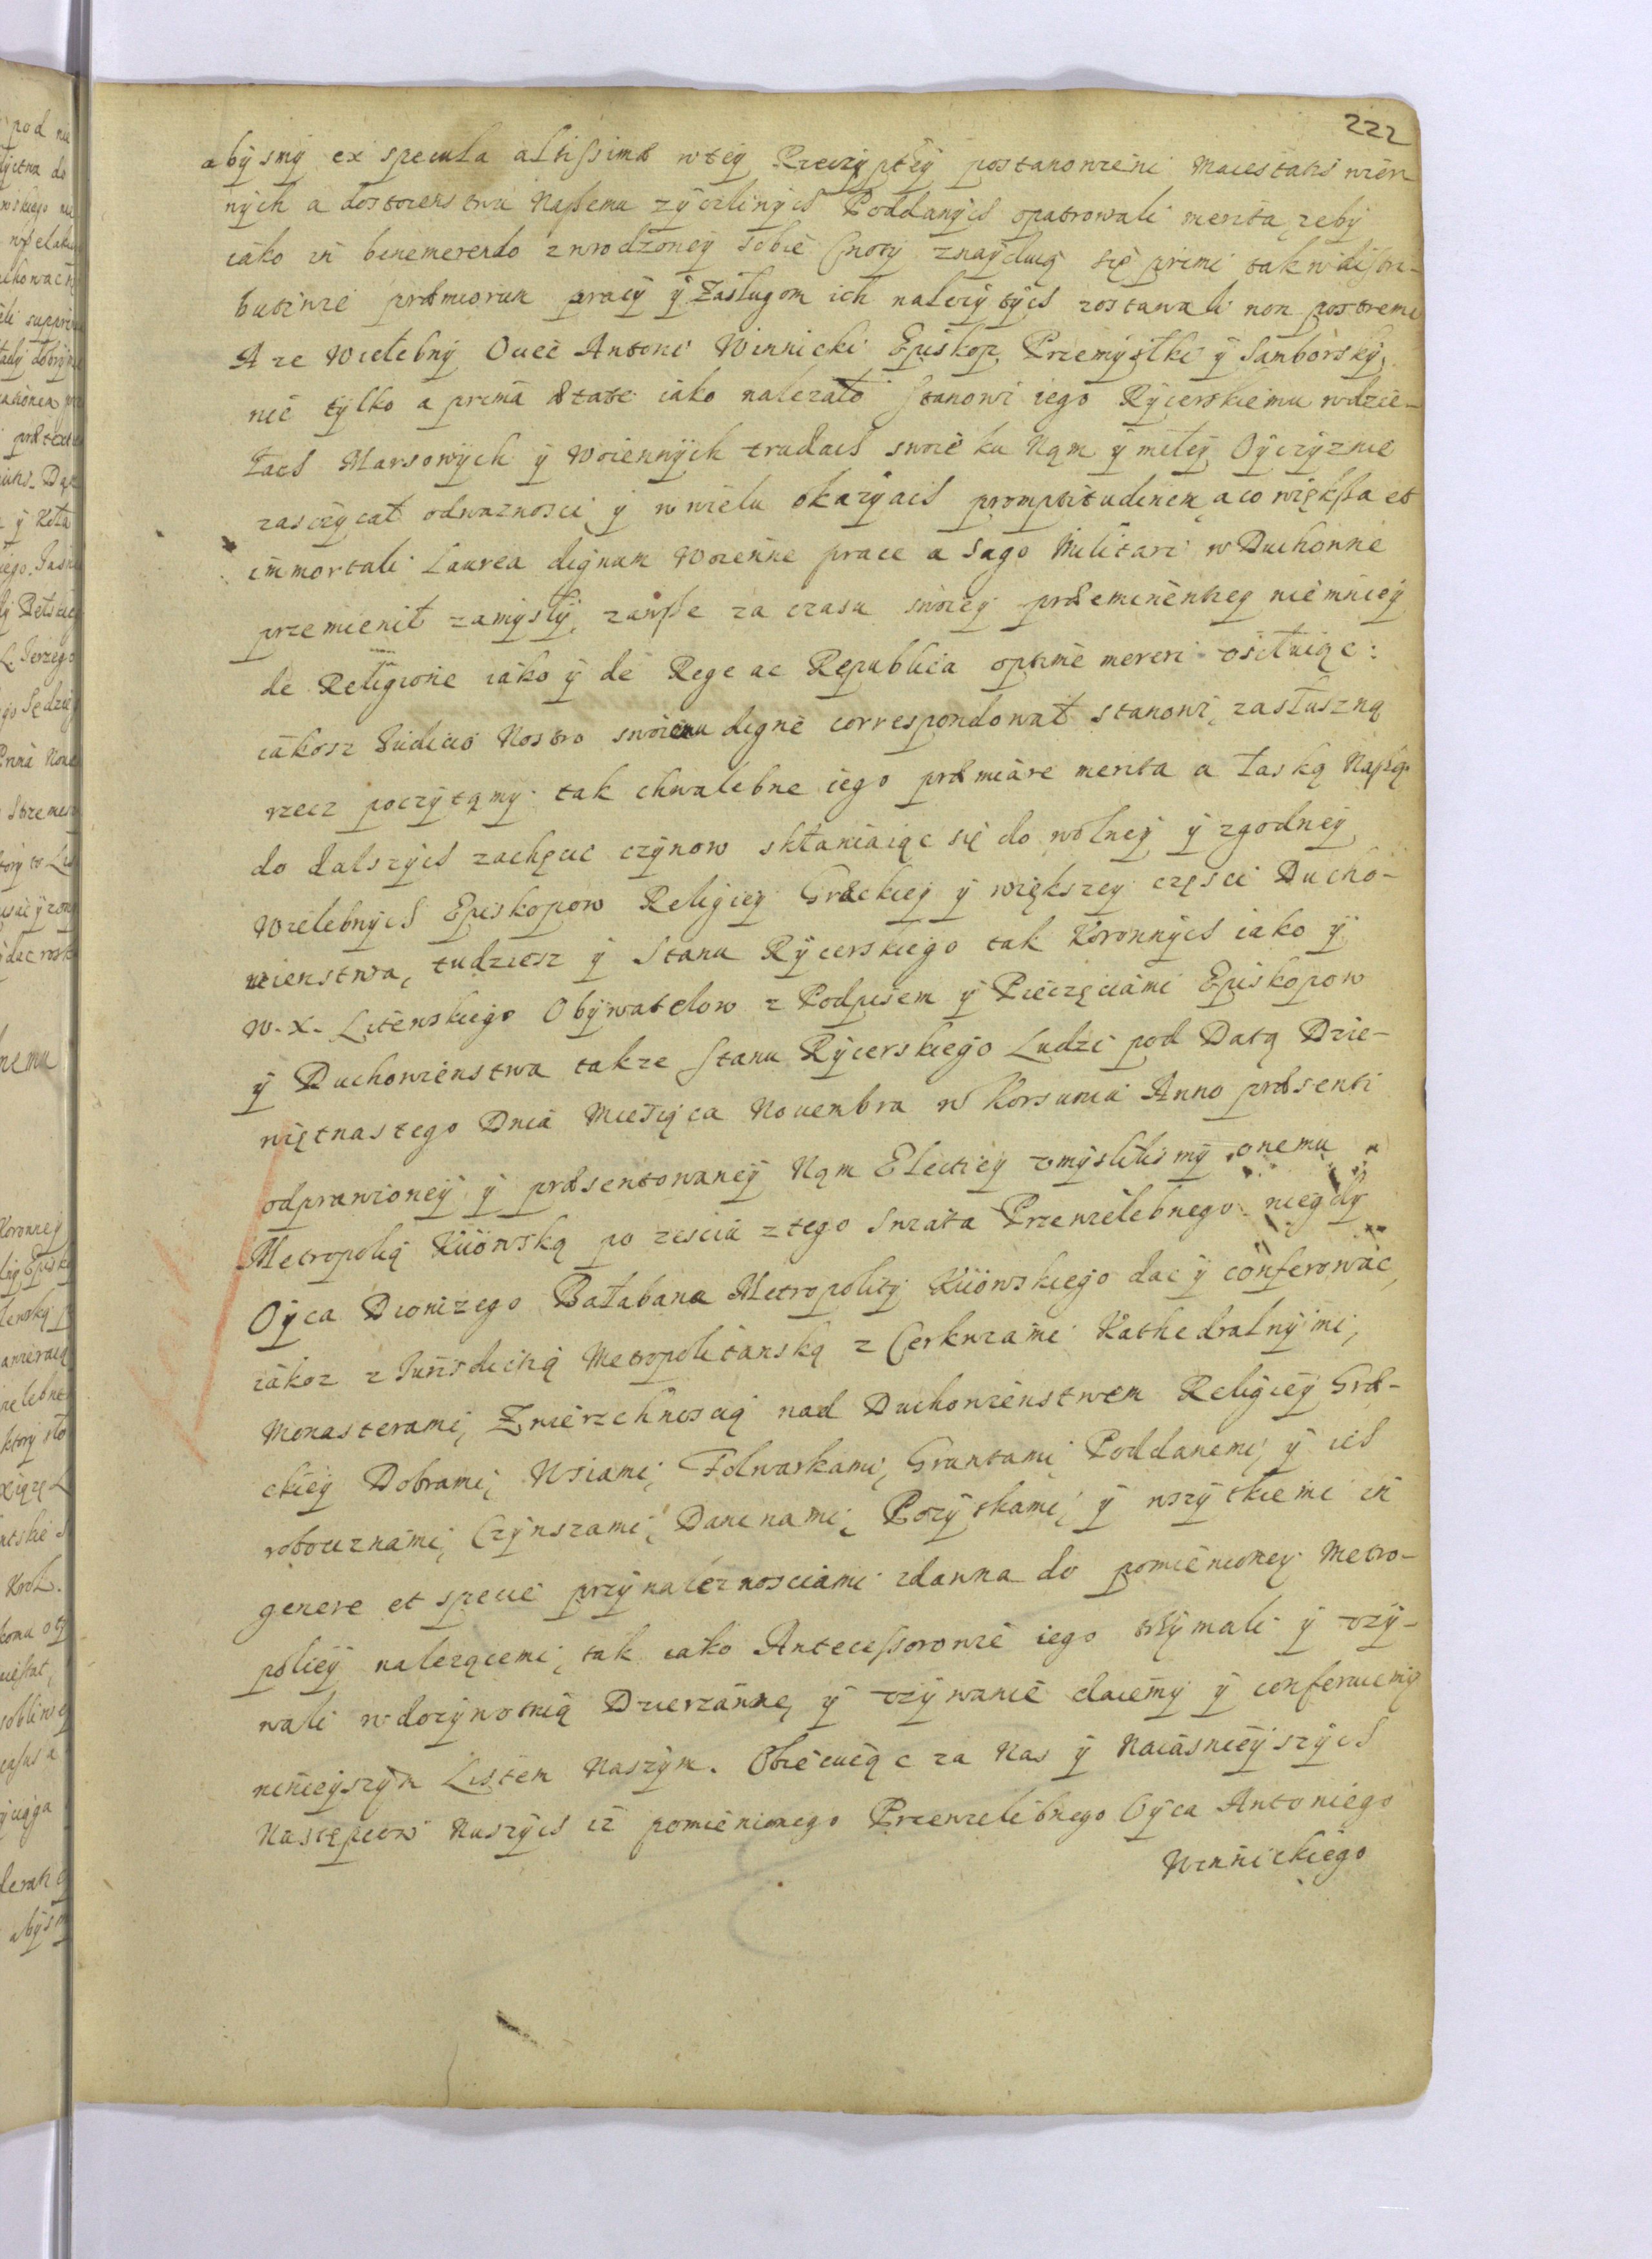 222
abysmy ex specula altissima w tey Rzeczyptey postanowieni Maiestatis wier-
nych a dostoienstwu Naszemu zyczliwych Poddanych opatrowali merita, zeby
iako in benemerendo z wrodzoney sobie Cnoty znayduią się primi tak w distri-
butiwie præmiorum pracy y Zasługom ich należytych zostawali non postremi
A ze Wielebny Ociec Antoni Winnicki Episkop Przemyski y Samborsky,
nie tylko a prima ætate iako należało stanowi iego Rycerskiemu w dzie-
łach Marsowych y Woiennych trudach swoie ku Nąm y miłey Oyczyznie
zasczycał odwaznosci y w wielu okazyach promptitudinem, a co większa et
immortali Laurea dignam Woienne prace a Sago Militari w Duchowne
przemienił zamysły, zawsze za czasu swoiey præeminentiey nie mniey
de Religione iako y de Rege ac Republica optime mereri usiłuiąc:
iakosz Iudicio Nostro swoiemu digne correspondował stanowi, za słuszną
rzecz poczytąmy tak chwalebne iego præmiare merita a łaską Naszą
do dalszych zachęcic czynow skłaniaiąc się do wolney y zgodney
Wielebnych Episkopow Religiey Græckiey y większey częsci Ducho-
wienstwa, tudziesz y Stanu Rycerskiego tak Koronnych iako y
W. X. Litewskiego Obywatelow z Podpisem y Pieczęciami Episkopow
y Duchowienstwa takze Stanu Rycerskiego Ludzi pod Datą Dzie-
więtnastego Dnia Miesiąca Nouembra w Korsuniu Anno præsenti
odprawioney y præsentowaney Nąm Electiey umyslilismy onemu
Metropolią Kiiowską po zesciu z tego Swiata Przewielebnego niegdy
Oyca Dionizego Bałabana Metropolity Kiiowskiego dac y conferowac,
iakoz z Iurisdictią Metropolitanską z Cerkwiami Kathedralnymi,
Monasterami, Zwierzchnoscią nad Duchowienstwem Religiey Græ-
ckiey Dobrami, Wsiami, Folwarkami, Gruntami, Poddanemi, y ich
robociznami, Czynszami, Daninami, Pozytkami, y wszytkiemi in
genere et specie przynaleznosciami zdawna do pomienioney Metro-
poliey nalezącemi, tak iako Antecessorowie iego trzymali y uzy-
wali w dozywotnią Dzierzawę, y uzywanie daiemy y conferuiemy
ninieyszym Listem Naszym. Obiecuiąc za Nas y Naiasnieyszych
Następcow Naszych iz pomienionego Przewielebnego Oyca Antoniego
Winnickiego